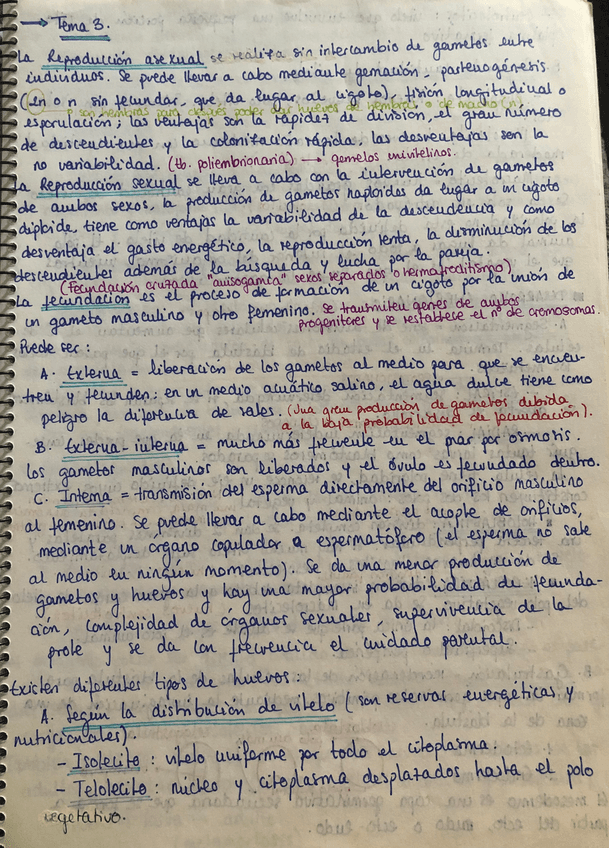 → Tema 3.
La Reproducción asexual se realiza sin intercambio de gametos entre
individuos. Se puede llevar a cabo mediante gemación, partenogénesis
(en o n sin fecundar, que da lugar al cigoto), fisión longitudinal o
son hembras para después poder dar huevos de hembras o de macho (n)
esporulación; las ventajas son la rapidez de división, el gran número
de descendientes y la colonización rápida, las desventajas son la
no variabilidad. (tb. poliembrionaria) → gemelos univitelinos.
La Reproducción sexual se lleva a cabo con la intervención de gametos
de ambos sexos, la producción de gametos haploides da lugar a un cigoto
diploide, tiene como ventajas la variabilidad de la descendencia y como
desventaja el gasto energético, la reproducción lenta, la disminución de los
descendientes además de la búsqueda y lucha por la pareja.
(fecundación cruzada "anisogamia" sexos separados o hermafroditismo)
La fecundación es el proceso de formación de un cigoto por la unión de
un gameto masculino y otro femenino. Se transmiten genes de ambos
progenitores y se restablece el nº de cromosomas.
Puede ser:
A. Externa = liberación de los gametos al medio para que se encuen-
tren y fecunden; en un medio acuático salino, el agua dulce tiene como
peligro la diferencia de sales. (Una gran producción de gametos debida
a la baja probabilidad de fecundación).
B. Externa-interna = mucho más frecuente en el mar por osmosis.
los gametos masculinos son liberados y el óvulo es fecundado dentro.
C. Interna = transmisión del esperma directamente del orificio masculino
al femenino. Se puede llevar a cabo mediante el acople de orificios,
mediante un órgano copulador o espermatóforo (el esperma no sale
al medio en ningún momento). Se da una menor producción de
gametos y huevos y hay una mayor probabilidad de fecunda-
ción, complejidad de órganos sexuales, supervivencia de la
prole y se da con frecuencia el cuidado parental.
Existen diferentes tipos de huevos:
A. Según la distribución de vitelo (son reservas energéticas y
nutricionales).
- Isolecito: vitelo uniforme por todo el citoplasma.
- Telolecito: núcleo y citoplasma desplazados hasta el polo
vegetativo.